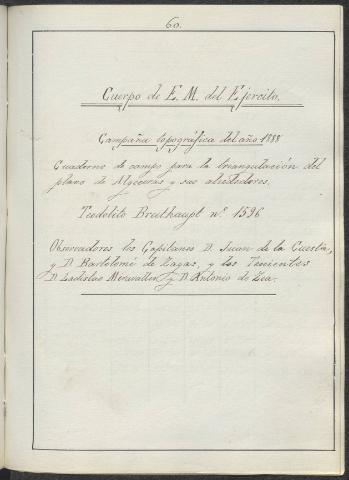 60.
Cuerpo de E. M. del Ejercito.
Campaña topográfica del año 1888
Cuaderno de campo para la triangulación del
plano de Algeciras y sus alrededores.
Teodolito Breithaupt nº. 1596
Observadores los Capitanes D. Juan de la Cuesta,
y D. Bartolomé de Zayas, y los Tenientes
D. Ladislao y D. Antonio de Zea.